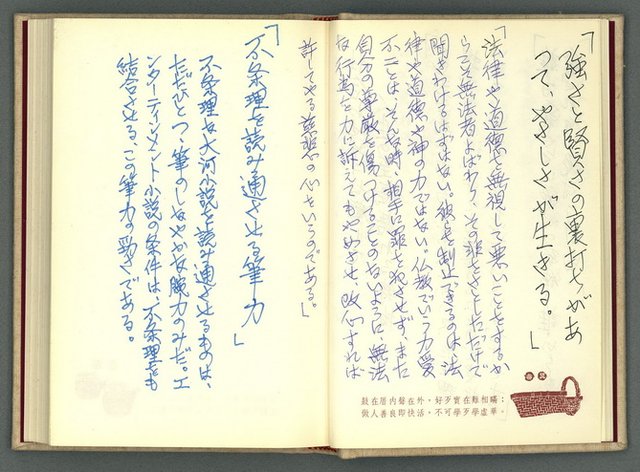 「強さと賢さの裏打ちがあ
って、やさしさが生きる。」
「法律や道徳を無視して悪いことをするか
らこそ無法者よばわり、その非をさとしただけで
聞きわけるはずはない。彼らを制止できるのは、法
律や道徳や神の力ではない。仏教でいう力愛
不二とは、そんな時、相手に罪を犯させず、また
自分の尊厳を傷つけることのないように、無法
な行為を力に訴えてもやめさせ、改心すれば
許してやる慈悲の心をいうのである。」
「不条理を読み通させる筆力」
不条理な大河小説を読み通させるものは、
ただひとつ、筆のしなやかな腕力のみだ。エ
ンターテインメント小説の条件は、不条理をも
結合させる、この筆力の勁さである。
鼓在厝内聲在外，好歹實在難相瞞；
做人善良即快活，不可學歹學虛華。